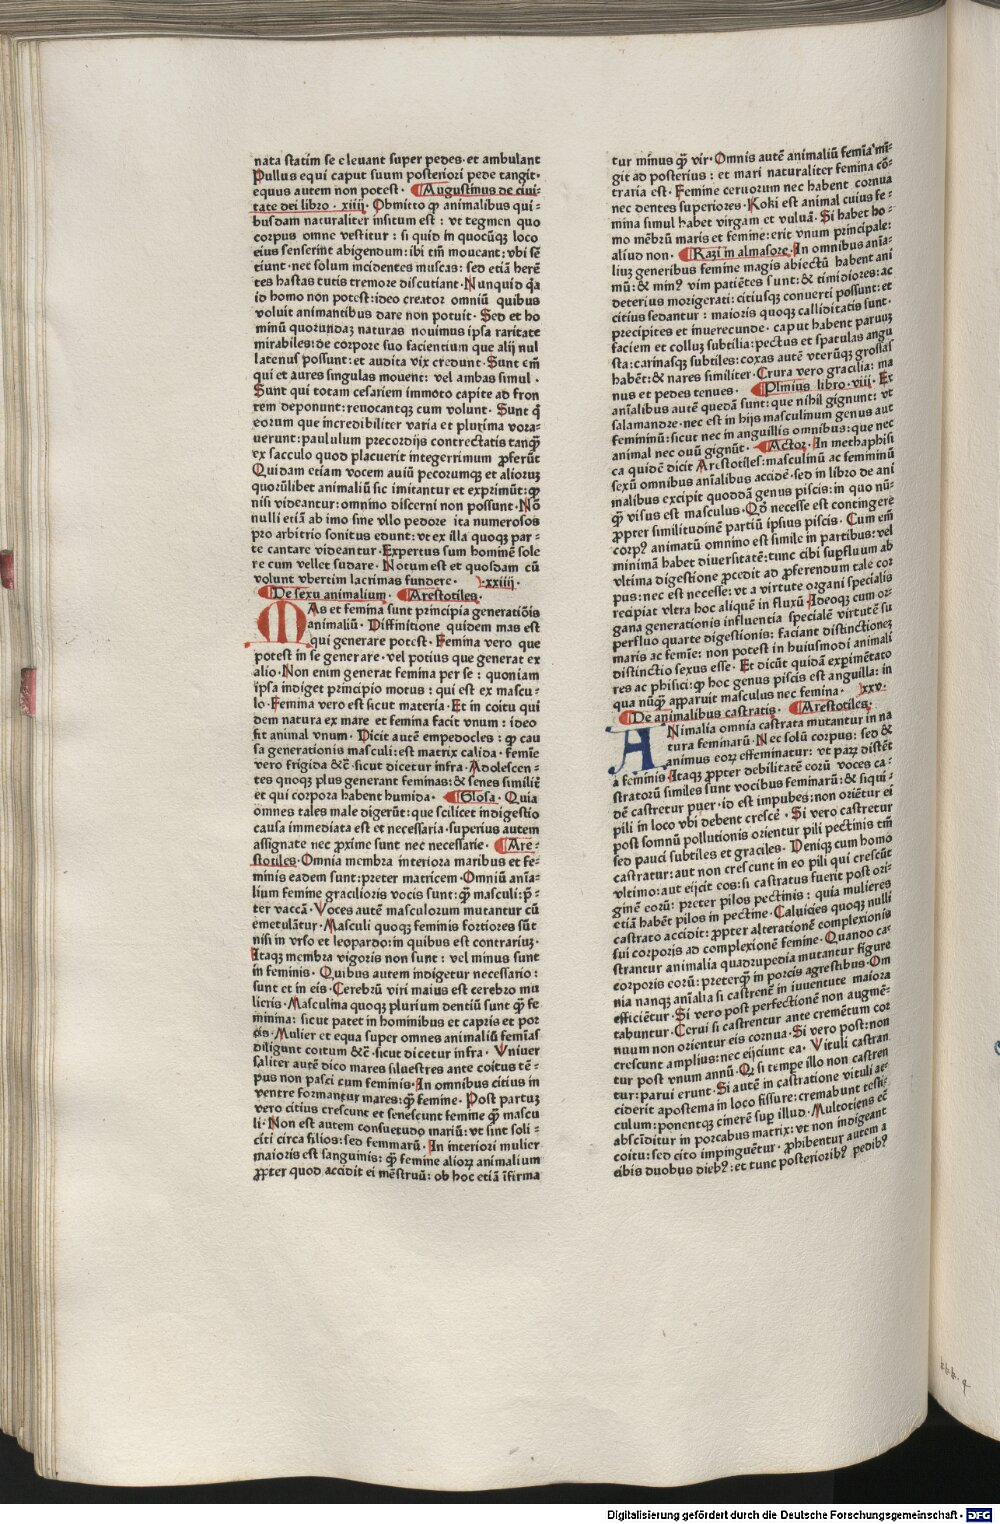 nata statim se eleuant super pedes· et ambulant
Pullus equi caput suum posteriori pede tangit·
equus autem non potest· Augustinus de ciui-
tate dei libro · xiiij· Obmitto qꝫ animalibus qui-
busdam naturaliter insitum est : vt tegmen quo
corpus omne vestitur : si quid in quocūqꝫ loco
eius senserint abigendum : ibi tm̄ moueant: vbi sē
tiunt· nec solum incidentes muscas: sed etiā herē
tes hastas cutis tremore discutiant· Nunquid q̄a
id homo non potest: ideo creator omniū quibus
voluit animantibus dare non potuit· Sed et ho
minū quorundaꝫ naturas nouimus ipsa raritate
mirabiles: de corpore suo facientium que alij nul
latenus possunt: et audita vix credunt· Sunt em̄
qui et aures singulas mouent: vel ambas simul ·
Sunt qui totam cesariem immoto capite ad fron
tem deponunt: reuocantqꝫ cum volunt· Sunt q̄
eorum que incredibiliter varia et plurima vora-
uerunt: paululum precordijs contrectatis tanqꝫ̄
ex sacculo quod placuerit integerrimum ꝓferūt
Quidam etiam vocem auiū pecorumqꝫ et alioruꝫ
quorūlibet animaliū sic imitantur et exprimūt: qꝫ
nisi videantur: omnino discerni non possunt· Nō
nulli etiā ab imo sine vllo pedore ita numerosos
pro arbitrio sonitus edunt: vt ex illa quoqꝫ par-
te cantare videantur· Expertus sum hominē sole
re cum vellet sudare· Notum est et quosdam cū
volunt vbertim lacrimas fundere· ·xxiiij·
De sexu animalium· Arestotiles·
MAs et femina sunt principia generatiōis
animaliū· Diffinitione quidem mas est
qui generare potest· Femina vero que
potest in se generare· vel potius que generat ex
alio· Non enim generat femina per se : quoniam
ipsa indiget principio motus : qui est ex mascu-
lo· Femina vero est sicut materia· Et in coitu qui
dem natura ex mare et femina facit vnum : ideo
fit animal vnum· Dicit autē empedocles : qꝫ cau
sa generationis masculi: est matrix calida· femīe
vero frigida &c̄· sicut dicetur infra· Adolescen-
tes quoqꝫ plus generant feminas: & senes similit̄
et qui corpora habent humida· Glosa· Quia
omnes tales male digerūt: que scilicet indigestio
causa immediata est et necessaria· superius autem
assignate nec ꝓxime sunt nec necessarie· Are-
stotiles· Omnia membra interiora maribus et fe-
minis eadem sunt: preter matricem· Omniū anīa-
lium femine gracilioris vocis sunt: qꝫ̄ masculi: p̄-
ter vaccā· Voces autē masculorum mutantur cū
emetulātur· Masculi quoqꝫ feminis fortiores sūt
nisi in vrso et leopardo: in quibus est contrariuꝫ·
Itaqꝫ membra vigoris non sunt : vel minus sunt
in feminis· Quibus autem indigetur necessario :
sunt et in eis· Cerebrū viri maius est cerebro mu
lieris· Masculina quoqꝫ plurium dentiū sunt qꝫ̄ fe
minina: sicut patet in hominibus et capris et por
cis· Mulier et equa super omnes animaliū femīas
diligunt coitum &c̄· sicut dicetur infra· Vniuer
saliter autē dico mares siluestres ante coitus tē-
pus non pasci cum feminis· In omnibus citius in
ventre formantur mares: qꝫ̄ femine· Post partuꝫ
vero citius crescunt et senescunt femine qꝫ̄ mascu
li· Non est autem consuetudo mariū: vt sint soli-
citi circa filios: sed feminarū· In interiori mulier
maioris est sanguinis: qꝫ̄ femine alioꝝ animalium
ꝓpter quod accidit ei mēstruū: ob hoc etiā īfirma
tur minus qꝫ̄ vir· Omnis autē animaliū femīa mī-
git ad posterius : et mari naturaliter femina cō-
traria est· Femine ceruorum nec habent cornua
nec dentes superiores· Koki est animal cuius fe-
mina simul habet virgam et vuluā· Si habet ho-
mo mēbrū maris et femine: erit vnum principale:
aliud non· Razi in almasore· In omnibus anīa-
liuꝫ generibus femine magis abiectū habent ani
mū: & minꝰ vim patiētes sunt: & timidiores: ac
deterius morigerati: citiusqꝫ conuerti possunt: et
citius sedantur : maioris quoqꝫ calliditatis sunt·
precipites et inuerecunde· caput habent paruuꝫ
faciem et colluꝫ subtilia: pectus et spatulas angu
sta: carinasqꝫ subtiles: coxas autē vterūqꝫ grossas
habēt: & nares similiter· Crura vero gracilia: ma
nus et pedes tenues· Plinius libro· viij· Ex
anīalibus autē quedā sunt: que nihil gignunt: vt
salamandre· nec est in hijs masculinum genus aut
femininū: sicut nec in anguillis omnibus: que nec
animal nec ouū gignūt· Actor· In methaphisi
ca quidē dicit Arestotiles: masculinū ac femininū
sexū omnibus anīalibus accidē· sed in libro de ani
malibus excipit quoddā genus piscis: in quo nū-
qꝫ̄ visus est masculus· Qd̄ necesse est contingere
ꝓpter similitudinē partiū ipsius piscis· Cum em̄
corpꝰ animatū omnino est simile in partibus: vel
minimā habet diuersitatē: tunc cibi suꝑfluum ab
vltima digestione ꝓcedit ad ꝓferendum tale cor
pus: nec est necesse: vt a virtute organi specialis
recipiat vltra hoc aliquē in fluxū· Ideoqꝫ cum or-
gana generationis influentia specialē virtutē su
perfluo quarte digestionis: faciant distinctioneꝫ
maris ac femīe: non potest in huiusmodi animali
distinctio sexus esse· Et dicūt quidā exꝑimētato
res ac phisici: qꝫ hoc genus piscis est anguilla: in
qua nūqꝫ̄ apparuit masculus nec femina· xxv·
De animalibus castratis· Arestotiles·
ANimalia omnia castrata mutantur in na
tura feminarū· Nec solū corpus: sed &
animus eoꝝ effeminatur: vt paꝝ distēt
a feminis· Itaqꝫ ꝓpter debilitatē eorū voces ca-
stratorū similes sunt vocibus feminarū: & si qui-
dē castretur puer· id est impubes: non oriētur ei
pili in loco vbi debent crescē · Si vero castretur
post somnū pollutionis orientur pili pectinis tm̄
sed pauci subtiles et graciles· Deniqꝫ cum homo
castratur: aut non crescunt in eo pili qui crescūt
vltimo: aut eijcit eos: si castratus fuerit post ori-
ginē eorū: preter pilos pectinis : quia mulieres
etiā habēt pilos in pectine· Caluicies quoqꝫ nulli
castrato accidit: ꝓpter alterationē complexionis
sui corporis ad complexionē femine· Quando ca-
strantur animalia quadrupedia mutantur figure
corporis eorū: preterqꝫ̄ in porcis agrestibus· Om
nia nanqꝫ anīalia si castrenē in iuuentute maiora
efficiētur· Si vero post perfectionē non augmē-
tabuntur· Cerui si castrentur ante cremētum cor
nuum non orientur eis cornua· Si vero post: non
crescunt amplius: nec eijciunt ea· Vituli castran
tur post vnum annū· Qꝫ si tempe illo non castren
tur: parui erunt· Si autē in castratione vituli ac-
ciderit apostema in loco fissure: cremabunt testi-
culum: ponentqꝫ cinerē suꝑ illud· Multotiens ec̄
absciditur in porcabus matrix: vt non indigeant
coitu: sed cito impinguētur· ꝓhibentur autem a
cibis duobus diebꝰ: et tunc posterioribꝰ pedibꝰ
Digitalisierung gefördert durch die Deutsche Forschungsgemeinschaft - DFG